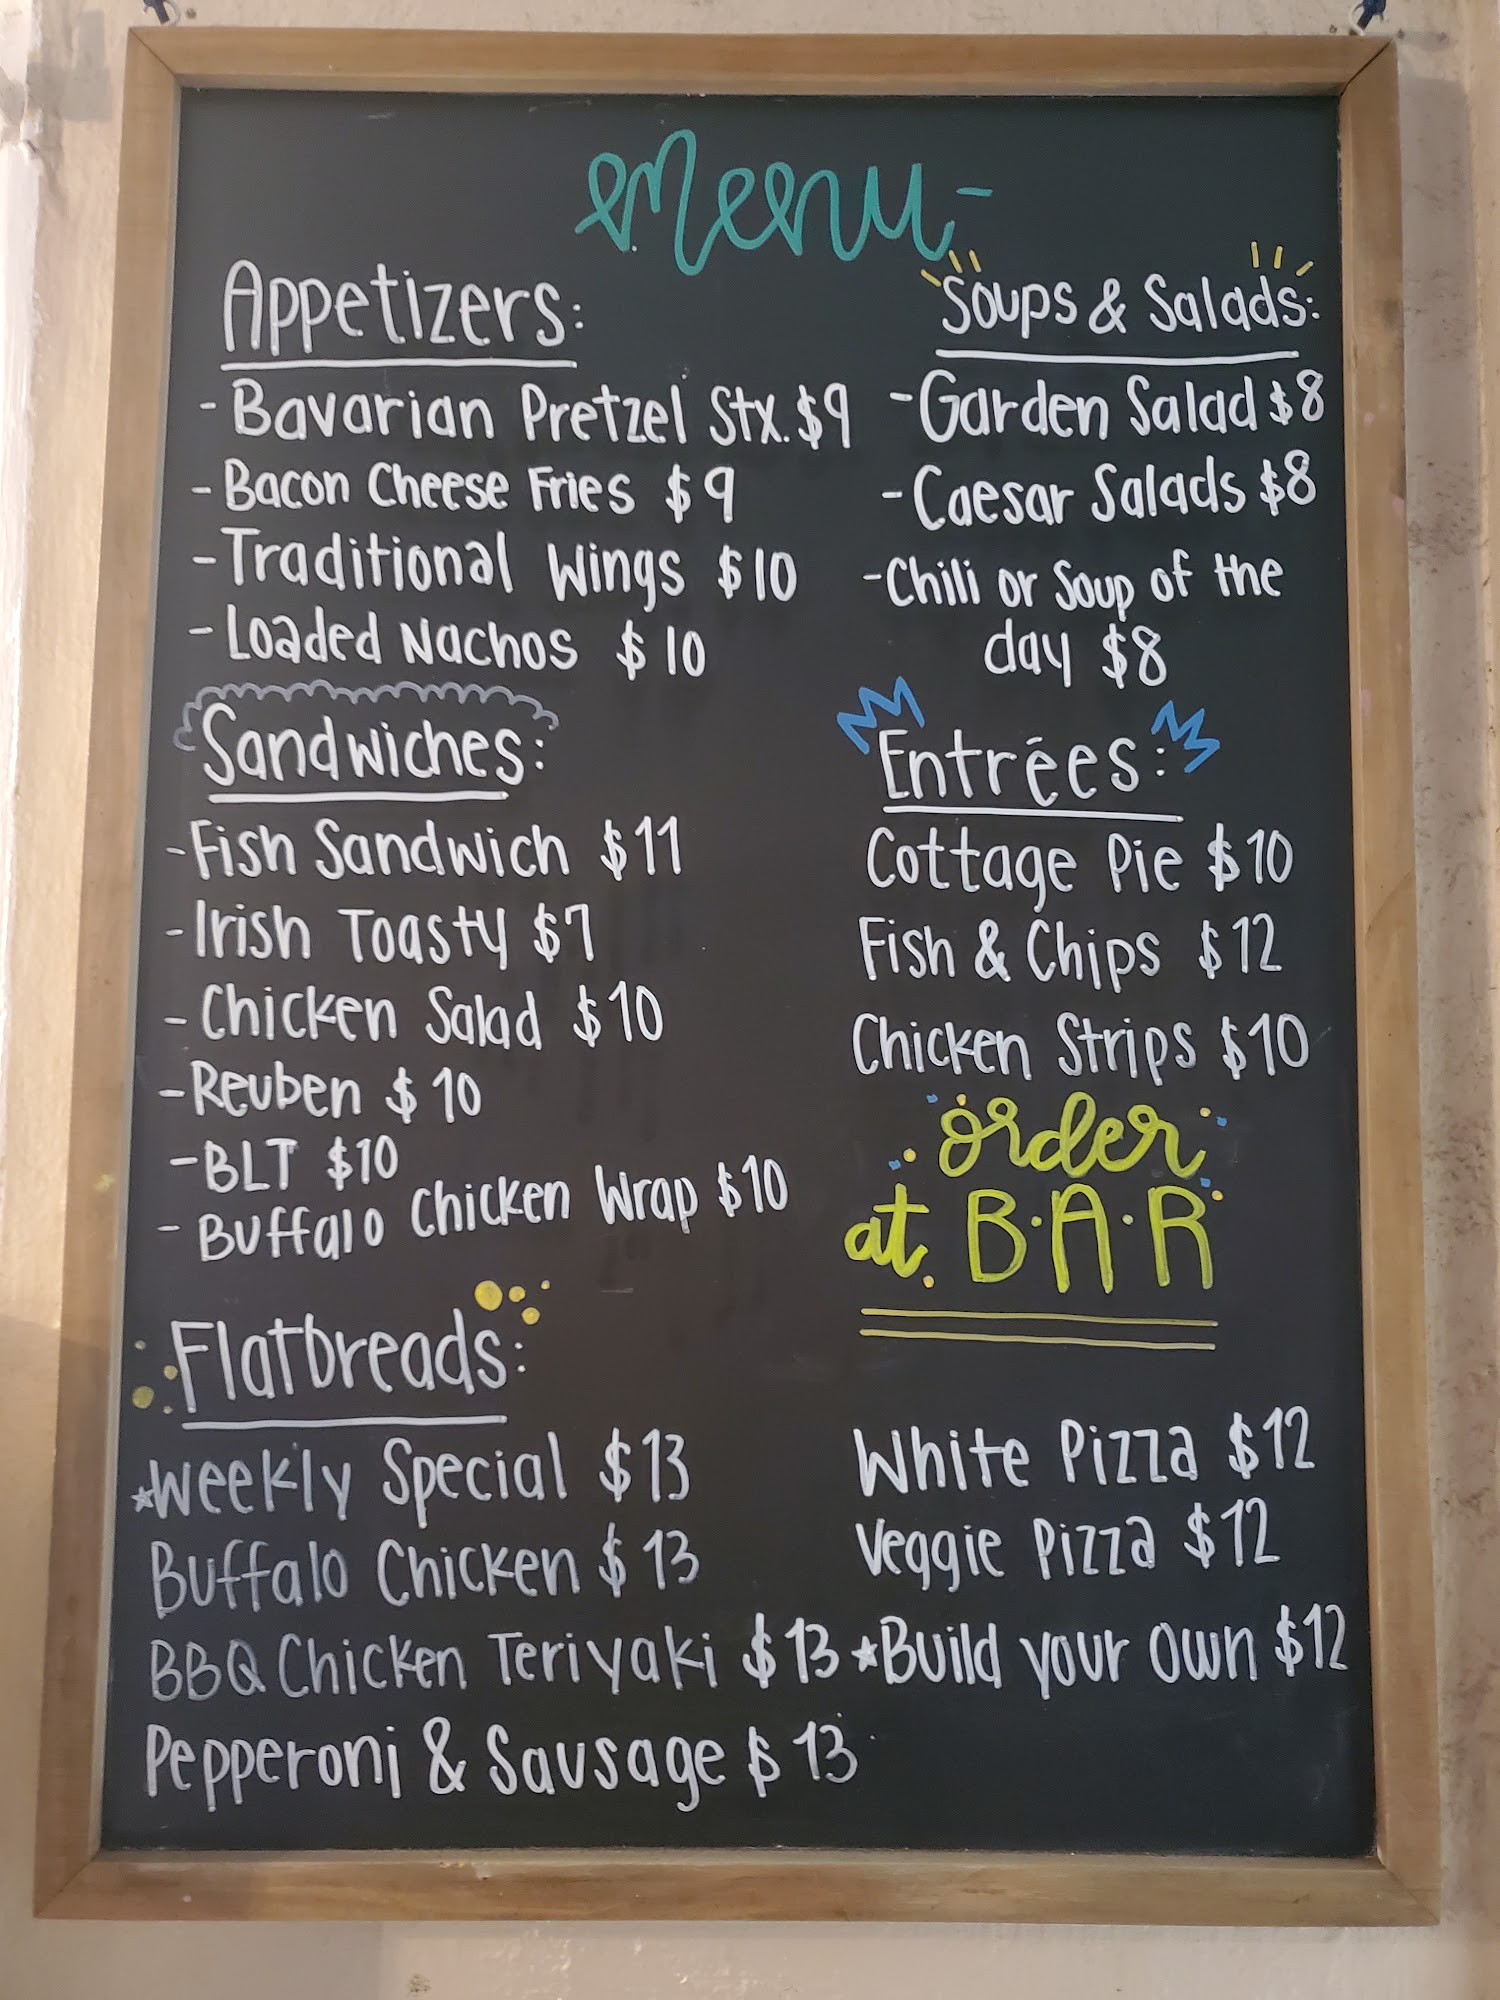 Menu-
Appetizers:
- Bavarian Pretzel Stx. $9
- Bacon Cheese Fries $9
- Traditional Wings $10
- Loaded Nachos $10
Sandwiches:
- Fish Sandwich $11
- Irish Toasty $7
- Chicken Salad $10
- Reuben $10
- BLT $10
- Buffalo Chicken Wrap $10
Soups & Salads:
- Garden Salad $8
- Caesar Salads $8
- Chili or Soup of the
day $8
Entrées:
Cottage Pie $10
Fish & Chips $12
Chicken Strips $10
order
at B·A·R
Flatbreads:
★Weekly Special $13
Buffalo Chicken $13
BBQ Chicken Teriyaki $13
Pepperoni & Sausage $13
White Pizza $12
Veggie Pizza $12
★Build your own $12